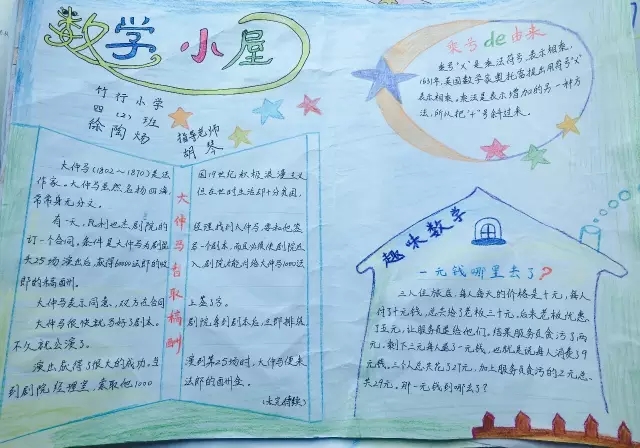 数学小屋
竹行小学
四(2)班
徐陶炀
指导老师
胡琴
大仲马(1802~1870)是法
作家。大仲马虽然名扬四海,
常常身无分文。
有一天,凡利也杰剧院的
订一个合同。条件是大仲马为剧院
大25场演出后,获得60000法郎的收
郎的稿酬。
大仲马表示同意,双方在合同
大仲马很快就写好了剧本。
不久就公演了。
演出获得了很大的成功。当
到剧院经理室,索取他1000
大仲马智取稿酬
国19世纪积极浪漫主义
但在世时生活却十分贫困,
经理找到大仲马,要和他签
后一个剧本,而且必须使剧院收入
入,剧院才能付给大仲马1000法
上签了字。
剧院拿到剧本后,立即排练
演到第25场时,大仲马便来
法郎的酬劳金。
(未完待续)
乘号de由来
乘号"X"是乘法符号,表示相乘。
1631年,英国数学家奥托雷提出用符号"X"
表示相乘。乘法是表示增加的另一种方
法,所以把"+"号斜过来。
趣味数学
一元钱哪里去了?
三人住旅店,每人每天的价格是十元,每人
付了十元钱,总共给了老板三十元,后来老板优惠
了五元,让服务员退给他们,结果服务员贪污了两
元,剩下三元每人退了一元钱,也就是说每人消费了9
元钱。三个人总共花了27元,加上服务员贪污的2元总
共29元。那一元钱到哪去了?